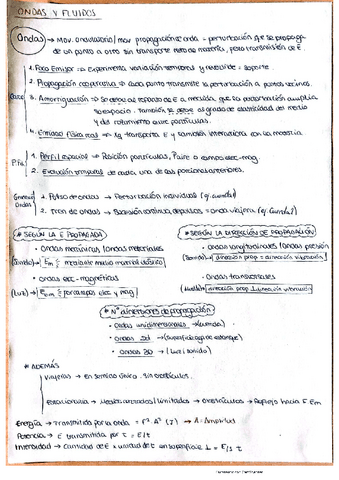 ONDAS Y FLUIDOS
Ondas → Mov. ondulatorio/mov. propagación onda = perturbación que se propaga
de un punto a otro sin transporte neto de materia, pero transmisión de E.
1. Foco Emisor → Experimenta variación temporal y
2. Propagación → Cada punto transmite la perturbación a puntos vecinos.
3. Amortiguación → Se debe al reparto de E a medida que la perturbación amplía
su espacio. También se debe al grado de elasticidad del medio
y del rozamiento entre partículas.
4. Entidad física real → Xq transporta E y también interacciona con la materia
1. Perfil espacial → Posición partículas, Paire o campos elec-mag.
2. Evolución temporal de cada una de las posiciones anteriores.
1. Pulso de ondas → Perturbación individual
2. Tren de ondas → Emisión continua de pulsos = onda viajera
* SEGÚN LA E PROPAGADA
* SEGÚN LA DIRECCIÓN DE PROPAGACIÓN
• Ondas mecánicas/Ondas materiales
• Ondas longitudinales/Ondas presión
(Sonido) Em mediante medio material elástico
(Sonido) dirección prop = dirección vibración
• Ondas elec-magnéticas
• Ondas transversales
(Luz) Ee-m propaga elec y mag
dirección prop ⊥ dirección vibración
* Nº dimensiones de propagación
• Ondas unidimensionales → (cuerda)
• Ondas 2d → (superficie agua estanque)
• Ondas 3D → (Luz/sonido)
* ADEMÁS
Viajeras → En sentido único. Sin obstáculos.
Estacionaria → Medios acotados/limitados → Obstáculos → Reflejo hacia E Em
Energía → Transmitida por la onda = F². A² (J) → A = Amplitud
Potencia → E transmitida por t = E/t
Intensidad → Cantidad de E x unidad de t en superficie ⊥ = E/s t